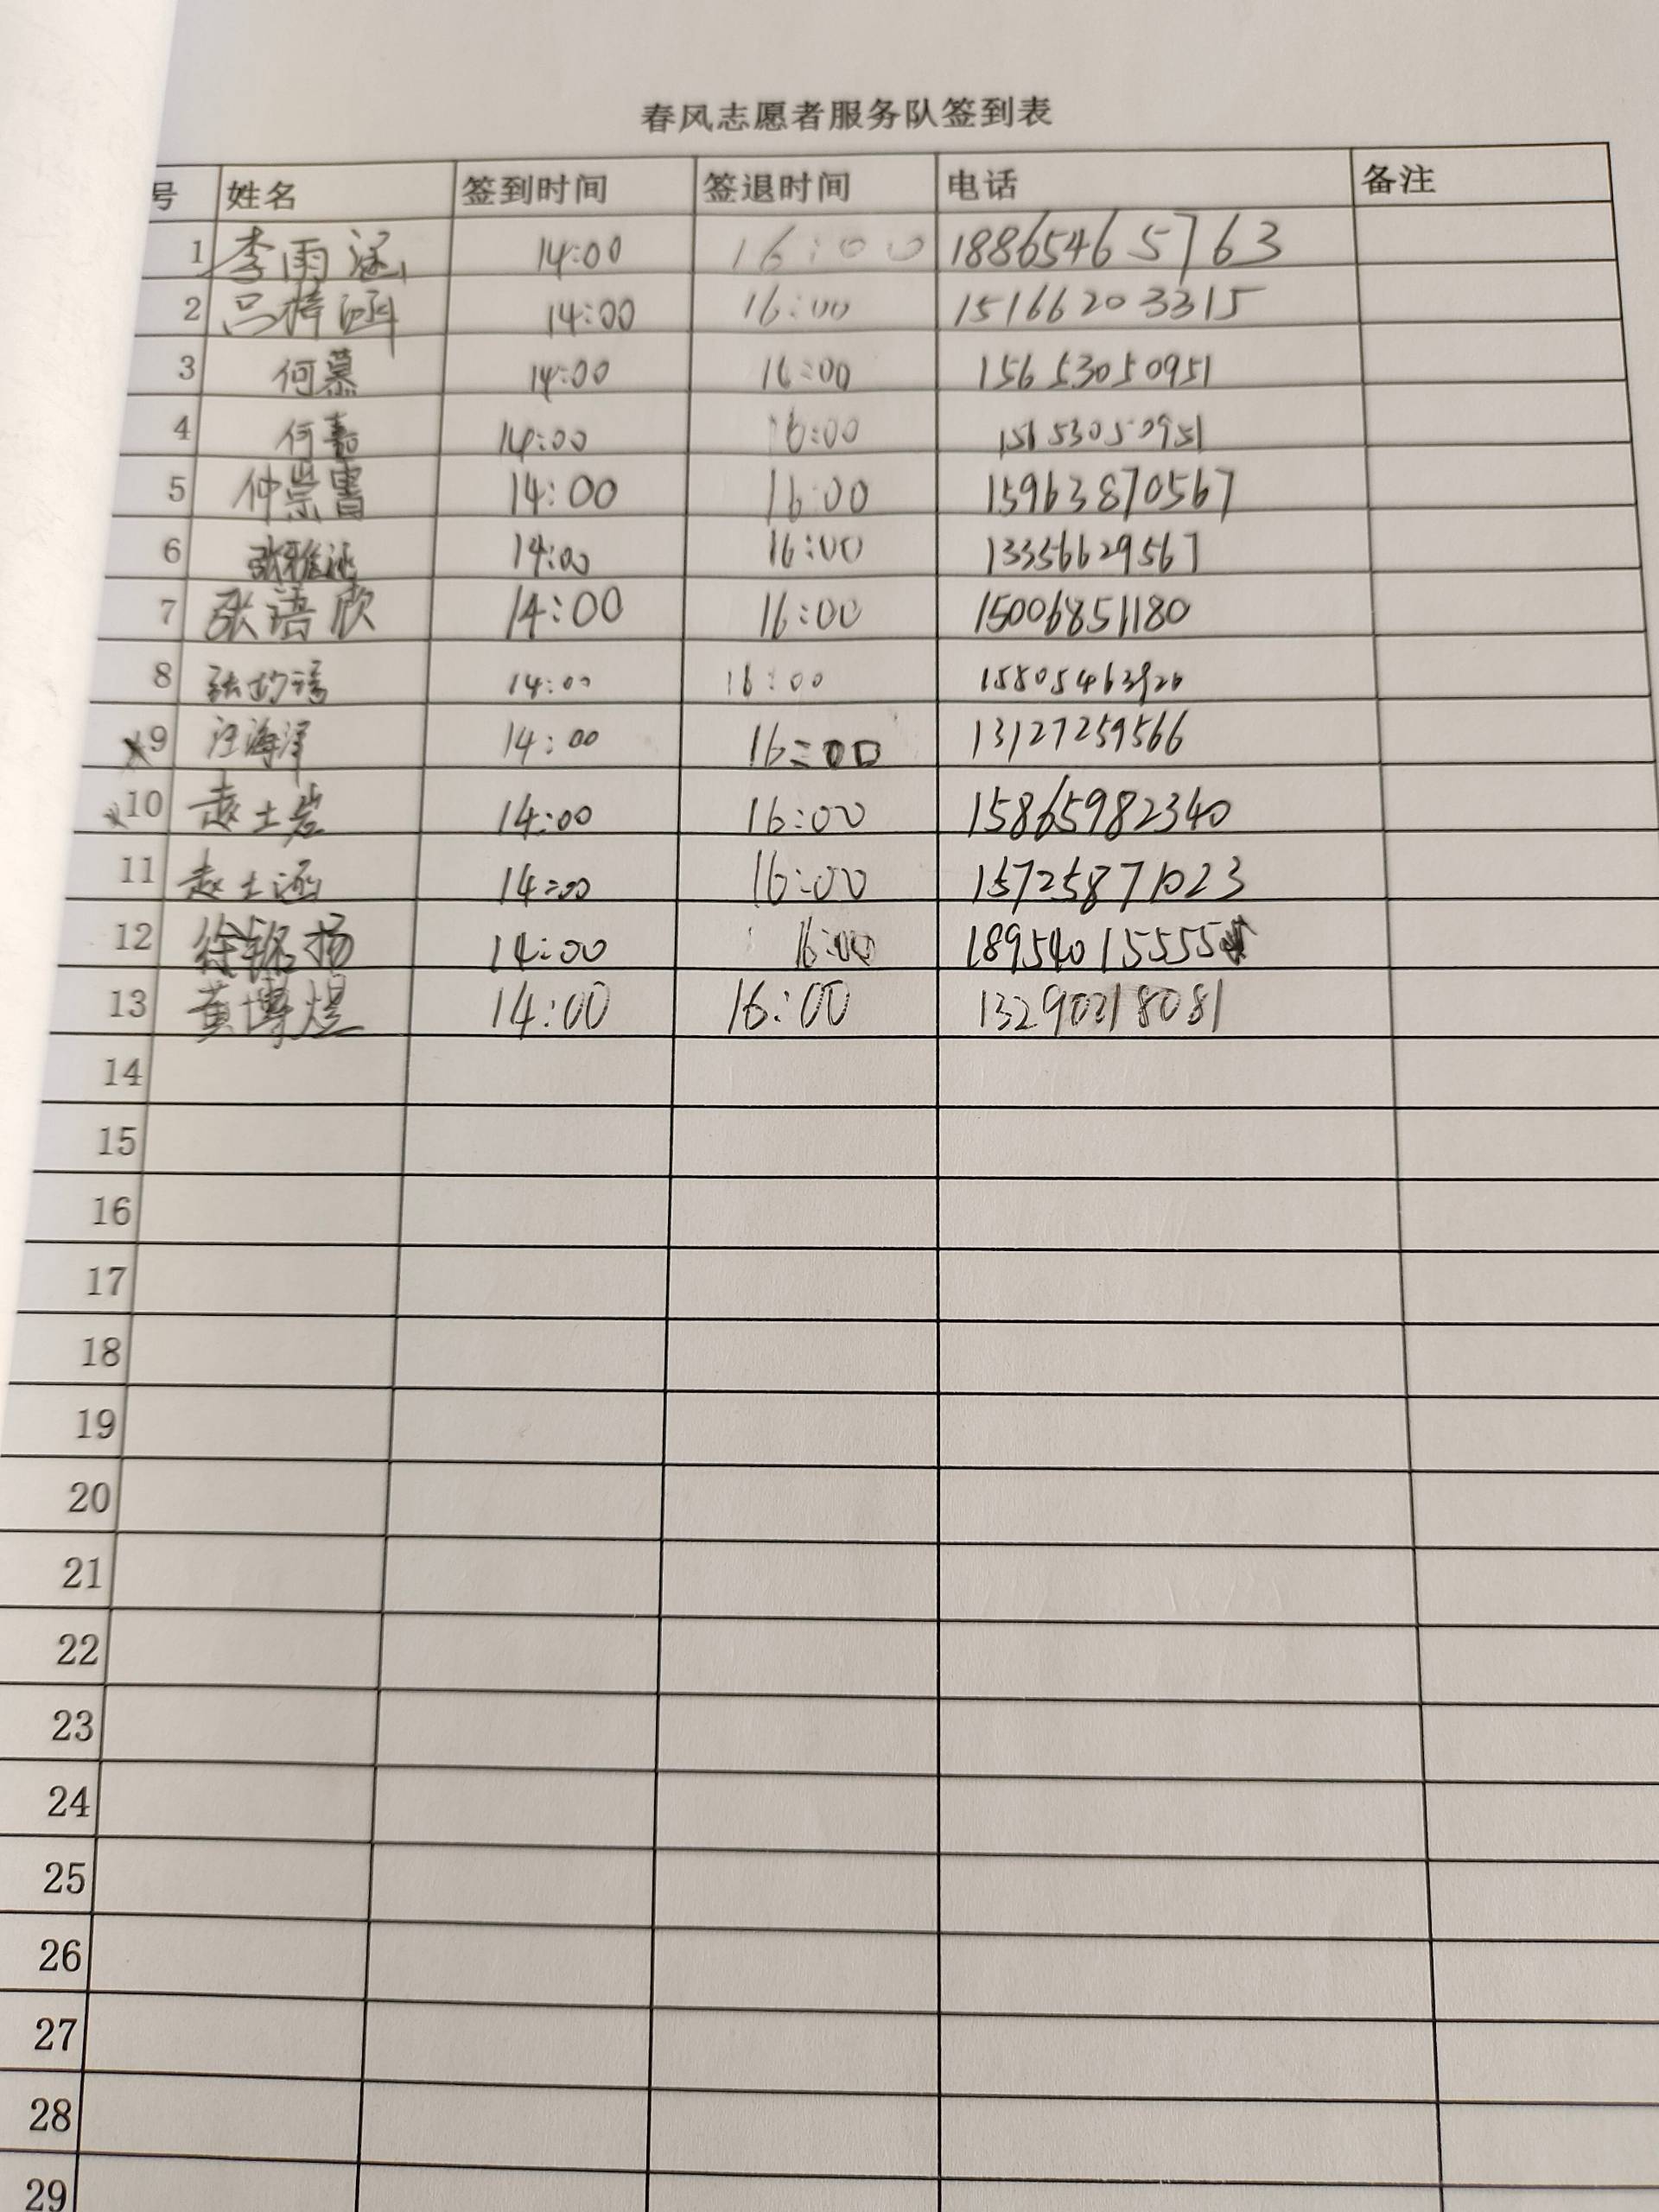 春风志愿者服务队签到表
号 姓名 签到时间 签退时间 电话 备注
1 李雨涵 14:00 16:00 18865465763
2 吕梓涵 14:00 16:00 15166203315
3 何慕 14:00 16:00 15653050951
4 何嘉 14:00 16:00
5 仲崇 14:00 16:00 15963870567
6 张雅涵 14:00 16:00 13356629567
7 张语欣 14:00 16:00 15006851180
8 张 14:00 16:00
9 汪海洋 14:00 16:00 13127259566
10 赵士岩 14:00 16:00 15865982340
11 赵士涵 14:00 16:00 15725871023
12 徐铭扬 14:00 16:00 18954015555
13 黄博煜 14:00 16:00
14
15
16
17
18
19
20
21
22
23
24
25
26
27
28
29